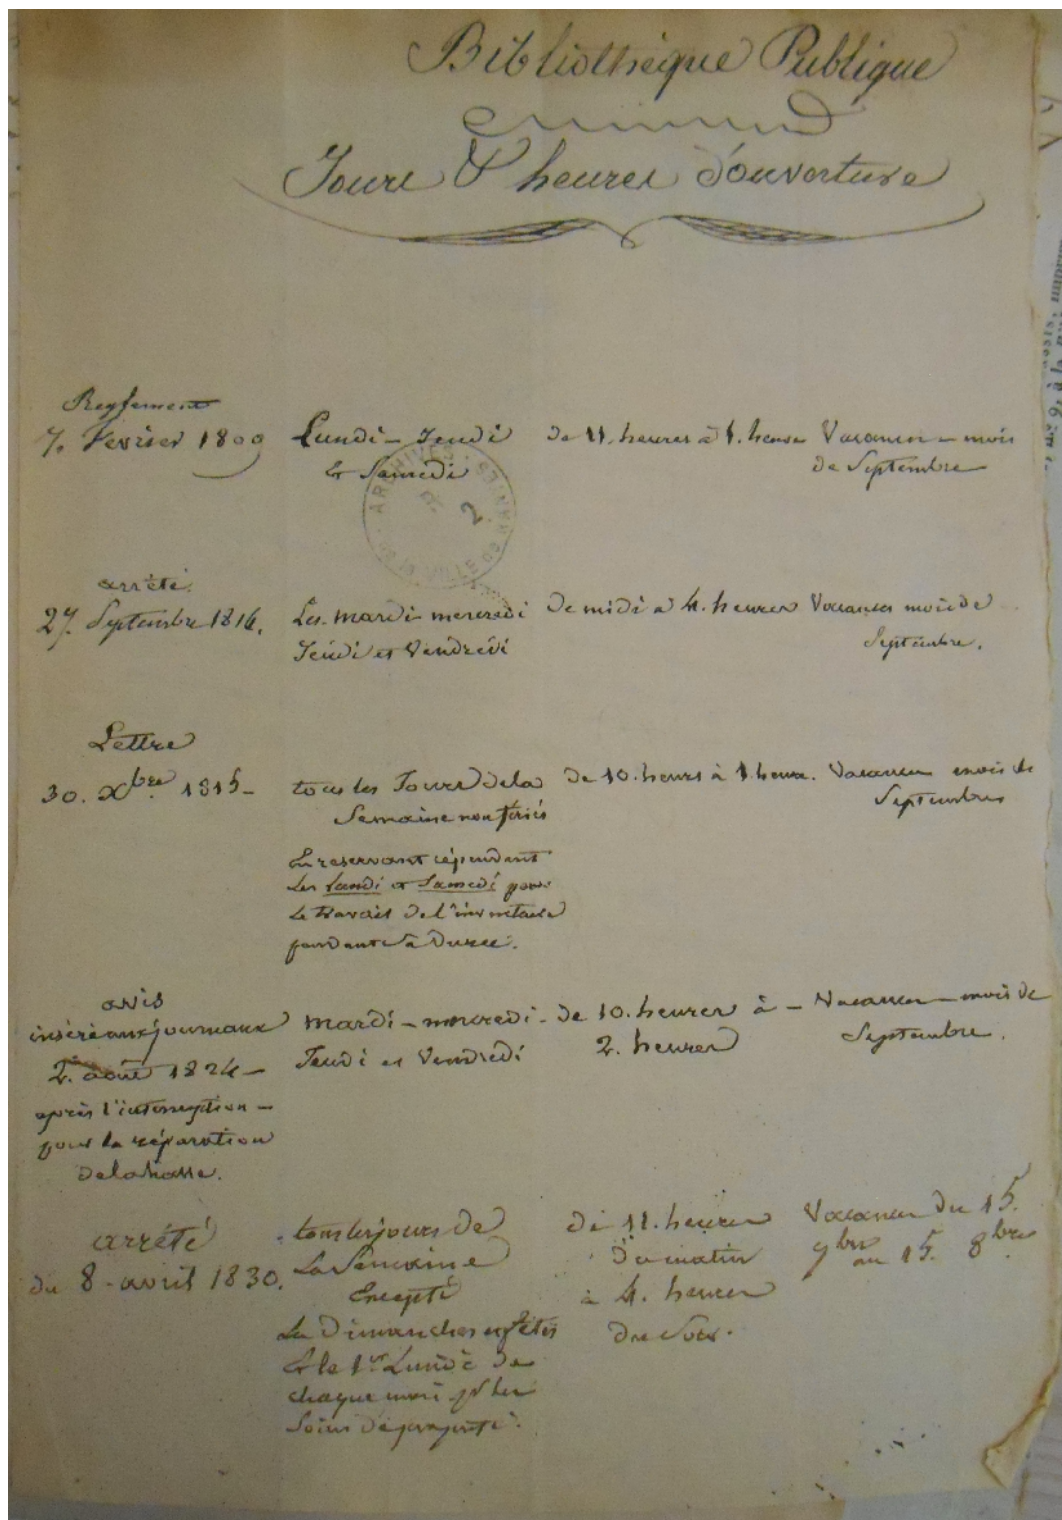 Bibliothéque Publique
Jours & heures d'ouverture
Reglement
7. Fevrier 1809
Lundi - Jeudi
& Samedi
de 11. heures à 1. heure
Vacances - mois
de Septembre
ARCHIVES
VILLE DE
2
arrêté
27. Septembre 1814.
Les mardi - mercredi
Jeudi et Vendredi
De midi à 4. heures
Vacances mois de
Septembre.
Lettre
30. Xbre 1815 -
tous les Jours de la
Semaine non fériés
En reservant cépendant
Les Lundi et Samedi pour
Le travail de l'inventaire
pendant sa Durée.
de 10. heures à 1 heure.
Vacances mois de
Septembre
avis
inséré aux journaux
2. août 1824 -
après l'interruption -
pour la réparation
mardi - mercredi -
Jeudi et Vendredi
de 10. heures à -
2. heures
Vacances - mois de
Septembre.
arrété
du 8 - avril 1830.
tous les jours de
La Semaine
Excepté
Les Dimanches et fêtes
& le 1er Lundi de
chaque mois pr les
Soins de propreté.
de 11. heures
du matin
à 4. heures
du Soir.
Vacances du 15.
9bre au 15. 8bre